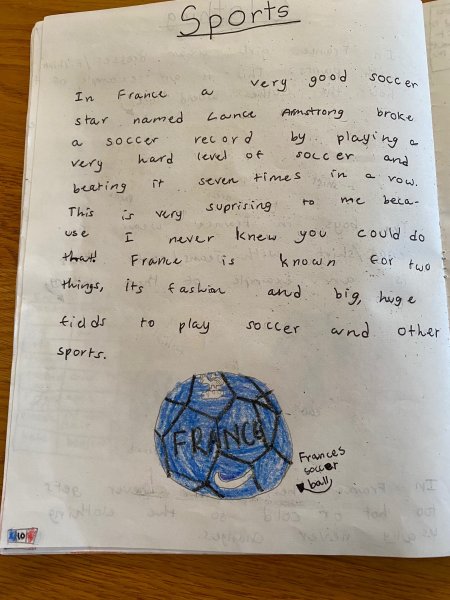 Sports
In France a very good soccer
star named Lance Armstrong broke
a soccer record by playing a
very hard level of soccer and
beating it seven times in a row.
This is very suprising to me beca-
use I never knew you could do
that! France is known for two
things, its fashion and big, huge
fields to play soccer and other
sports.
FRANCE
Frances
soccer
ball
10